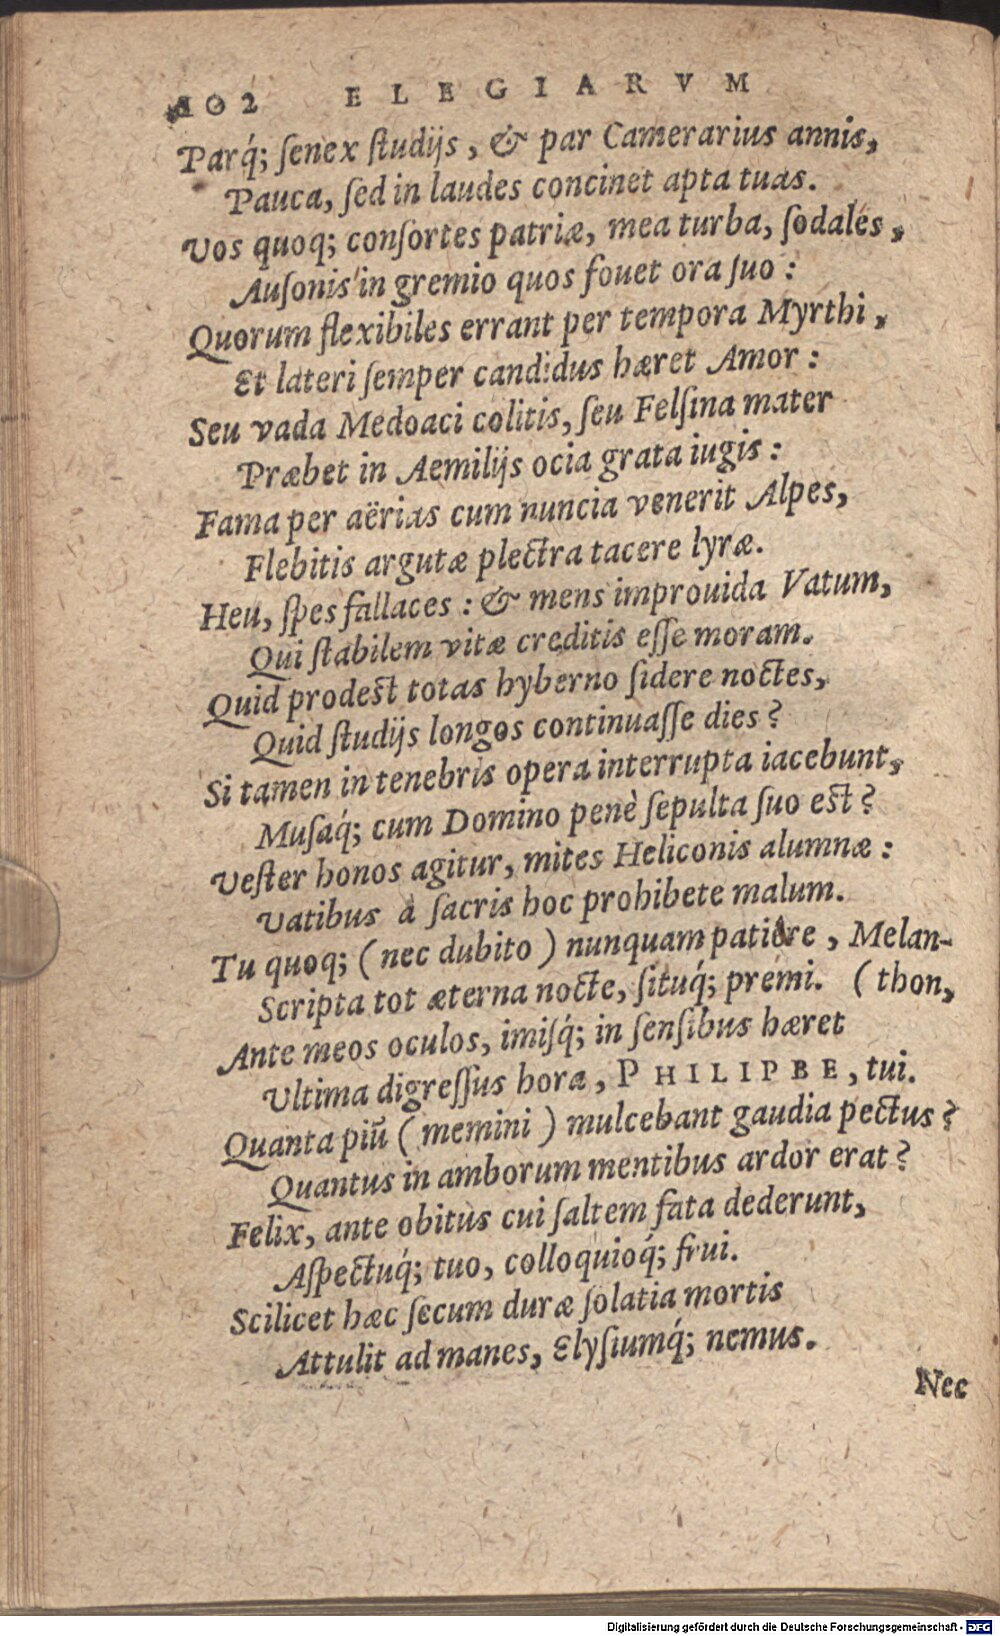 102 ELEGIARVM
Parq́; ſenex ſtudijs, & par Camerarius annis,
Pauca, ſed in laudes concinet apta tuas.
Vos quoq; conſortes patriæ, mea turba, ſodales,
Auſonis in gremio quos fouet ora ſuo:
Quorum flexibiles errant per tempora Myrthi,
Et lateri ſemper candidus hæret Amor:
Seu vada Medoaci colitis, ſeu Felſina mater
Præbet in Aemilijs ocia grata iugis:
Fama per aërias cum nuncia venerit Alpes,
Flebitis argutæ plectra tacere lyræ.
Heu, ſpes fallaces: & mens improuida Vatum,
Qui ſtabilem vitæ creditis eſſe moram.
Quid prodest totas hyberno ſidere noctes,
Quid ſtudijs longos continuaſſe dies?
Si tamen in tenebris opera interrupta iacebunt,
Muſaq́; cum Domino penè ſepulta ſuo est?
Veſter honos agitur, mites Heliconis alumnæ:
Vatibus à ſacris hoc prohibete malum.
Tu quoq; (nec dubito) nunquam patiére, Melan-
Scripta tot æterna nocte, ſituq́; premi. (thon,
Ante meos oculos, imiſq́; in ſenſibus hæret
Vltima digreſſus hora, PHILIPBE, tui.
Quanta piũ (memini) mulcebant gaudia pectus?
Quantus in amborum mentibus ardor erat?
Felix, ante obitus cui ſaltem fata dederunt,
Aſpectuq́; tuo, colloquioq́; frui.
Scilicet hæc ſecum duræ ſolatia mortis
Attulit ad manes, Elyſiumq́; nemus.
Nec
Digitalisierung gefördert durch die Deutsche Forschungsgemeinschaft - DFG